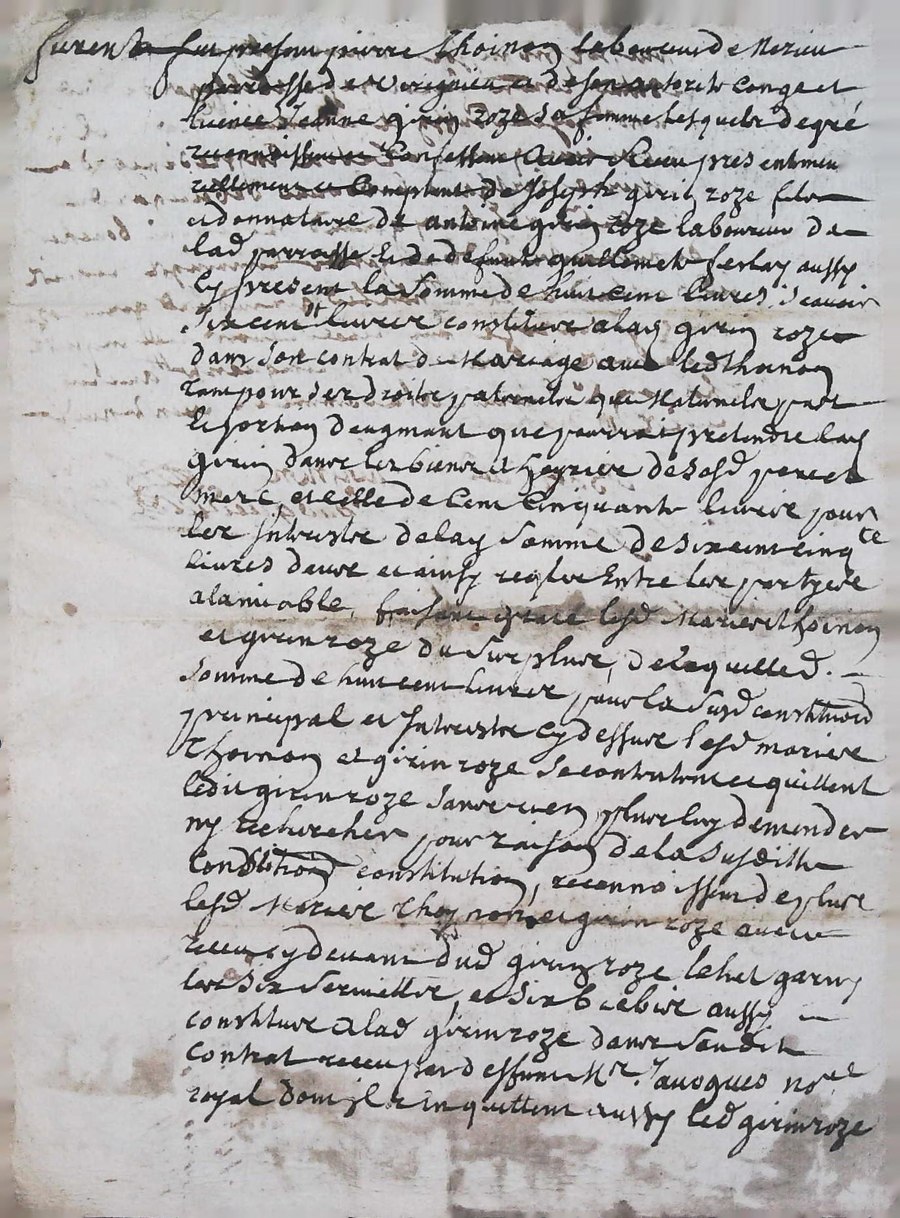 furent presens pierre thoinon laboureur de Merieu
parroisse de veregnieu et de son autorite conge et
licence Jeanne girin roze sa femme lesquels de gré
reconnoissent et confessent avoir receu presentemen
reellement et comptant de Joseph girin roze fils
et donnataire de antoine girin roze laboureur de
lad parroisse et de deffunte guillemette ferlay aussy
cy present la somme de huit cent livres, scavoir
six cent ll livres constituee alad girin roze
dans son contrat de Mariage avec led thoinon
tant pour ses droits paternels que Maternels part
et portion daugmant que pourroit pretendre lad
girin dans les biens et hoyries de sesd pere et
mere, et celle de cent cinquante livres pour
les Interests de lad somme de six cent cinq te
livres deue et ainsy reglee Entre les partyes
a lamiable, faisant grace lesd Maries thoinon
et girin roze du surplus, de laquelle d.
somme de huit cent livres pour la susd constitution
principal et Interests cy dessus lesd maries
thoinon et girin roze se contentent et quittent
ledit girin roze sans rien plus luy demender
ny rechercher pour raison de la susditte
constitution, reconnoissent de plus
lesd Maries thoynon et girin roze avoir
receu cy devant dud girin roze le lict garny
les six serviettes, et six brebis aussy
constitues a lad girin roze dans sondit
contrat receu par deffunt Mr. Javogues no.re
royal dont ils en quittent aussy led girin roze